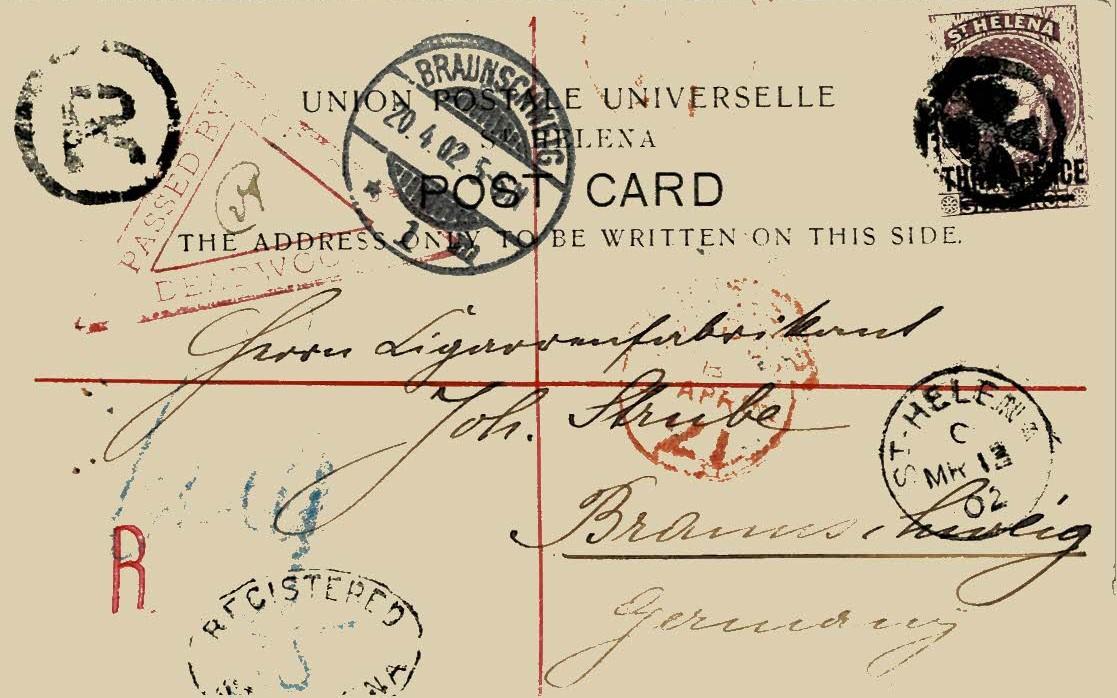 ST HELENA
R
UNION POSTALE UNIVERSELLE
ST. HELENA
POST CARD
THE ADDRESS ONLY TO BE WRITTEN ON THIS SIDE.
THREE PENCE
BRAUNSCHWEIG
20.4.02.5-6N
PASSED BY
DEADWOOD
Herrn Cigarrenfabrikant
Joh. Strube
Braunschweig
Germany
APR
21
ST-HELENA
C
MR 13
02
R
REGISTERED